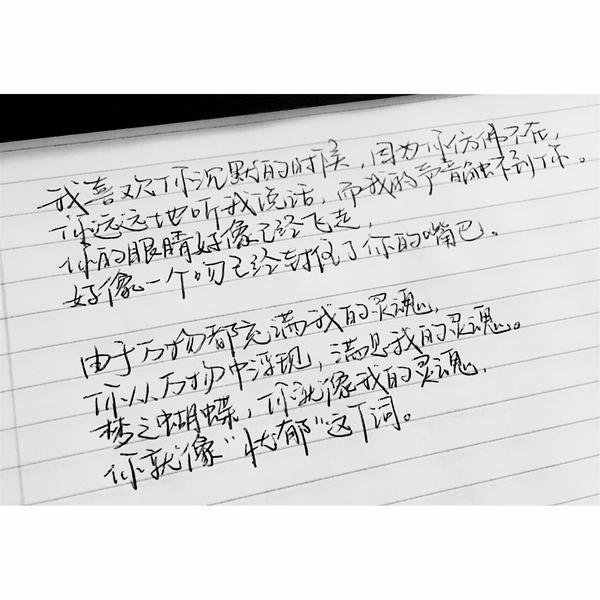 我喜欢你沉默的时候，因为你仿佛不在，
你远远地听我说话，而我的声音触不到你。
你的眼睛好像已经飞走，
好像一个吻已经封住了你的嘴巴。
由于万物都充满我的灵魂，
你从万物中浮现，满是我的灵魂。
梦之蝴蝶，你就像我的灵魂，
你就像“忧郁”这个词。